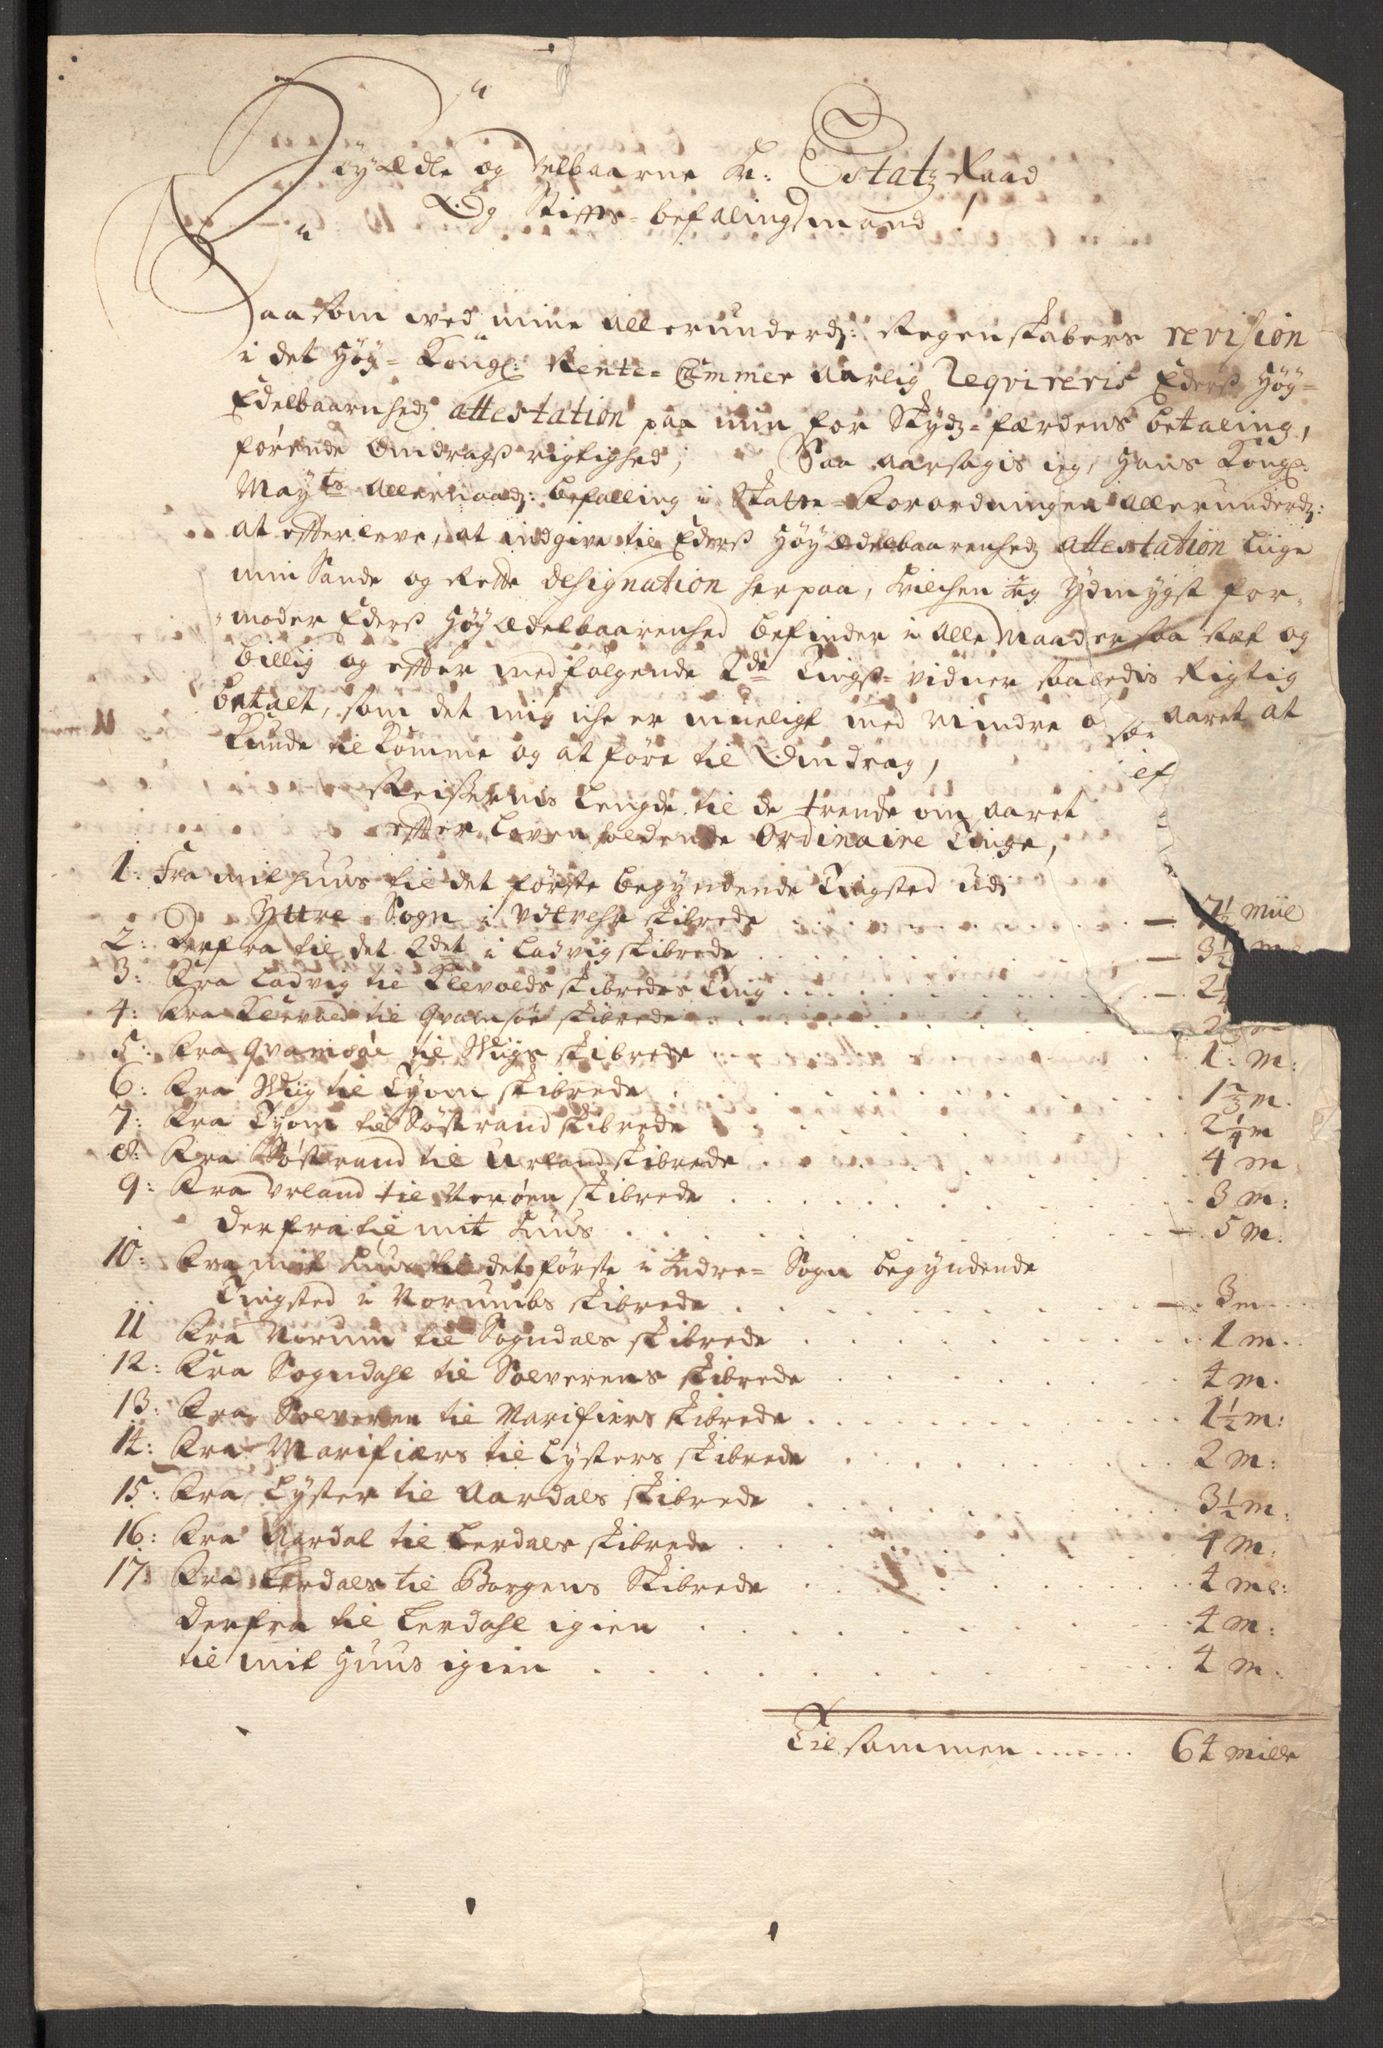 Höyædle og velbaarne Hr: Etatz Raad
Og Stiffts-befalingsmand
Saasom wed mine allerunderd: Regenskabers revision
i det Höy-Kongl: Rente-Cammer aarlig reqvireris Eders Höy-
Edelbaarnhedz attestation paa min for Skydz-færdens betaling,
förende Omdrags rigtighed; Saa aarsagis ieg, Hans Kongl:
Mayts allernaadz: befalling i Skatte-Forordningen allerunderdz:
at effterleve, at indgive til Eders Höyædelbaarenhedz attestation
min Sande og Rette designation herpaa, hvilchen ieg ydmygst for-
moder Eders Höyædelbaarenhed befinder i alle maader saa Ret og
billig og effter medfölgende 2de Tings-vidner saaledis Rigtig
betalt, som det mig iche er mueligt med mindre aaret at
Kunde tilkomme og at före til Omdrag,
Reissernis Lengde til de trende om aaret
effter Loven holdende Ordinaire Tinge,
1: Fra mit huus til det förste begyndende Tingsted udi
Yttre Sogn i Utvehr skibrede 7½ Miil
2: Derfra til det 2det i Ladvig skibrede
3: Fra Ladvig til Klevolds skibredes Ting
4: Fra Klevold til Qvamsöe skibrede
5: Fra Qvamsöe til Wiigs skibrede 1: m:
6: Fra Wiig til Tyom skibrede m.
7: Fra Tyom til Söstrand skibrede 2¼ m
8: Fra Söstrand til Urland skibrede 4 m
9: Fra Urland til Neröen skibrede 3 m:
Derfra til mit Huus 5 m:
10: Fra mit Huus til det förste i Indre-Sogn begyndende
Tingsted i Norumbs skibrede 3 m
11 Fra Norum til Sogndals skibrede 1 m.
12: Fra Sogndahl til Solverens skibrede 4 m.
13: Fra Solveren til Marifiers skibrede 1½ m:
14: Fra Marifiærs til Lysters skibrede 2 m:
15: Fra Lyster til Aardals skibrede 3½ m:
16: Fra Aardal til Lerdals skibrede 4 m:
17: Fra Lerdals til Borgens Skibrede 4 ml:
Derfra til Lerdahl igien 4 m:
til mit Huus igien 4 m:
Tilsammen 64 mille